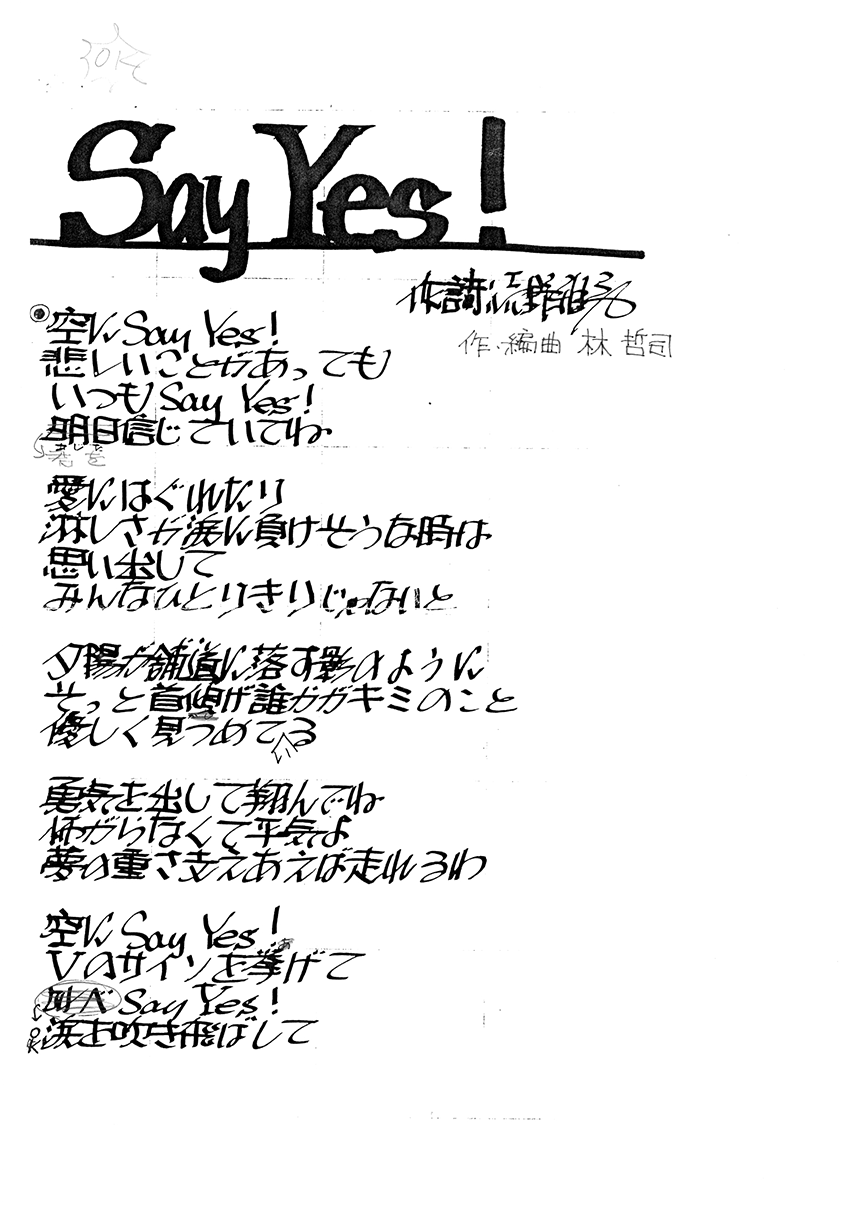 30K
Say Yes!
作詩 売野雅勇
作・編曲 林 哲司
空に Say Yes!
悲しいことがあっても
いつも Say Yes!
明日信じていてね
君を
愛にはぐれたり
淋しさが涙に負けそうな時は
思い出して
みんなひとりきりじゃないと
夕陽が舗道に落す影のように
そっと首傾げ誰かがキミのこと
優しく見つめてる
い
勇気を出して翔んでね
怖がらなくて平気よ
夢の重さ支えあえば走れるわ
空に Say Yes!
Vのサインを挙げて
叫べ Say Yes!
OK
涙を吹き飛ばして